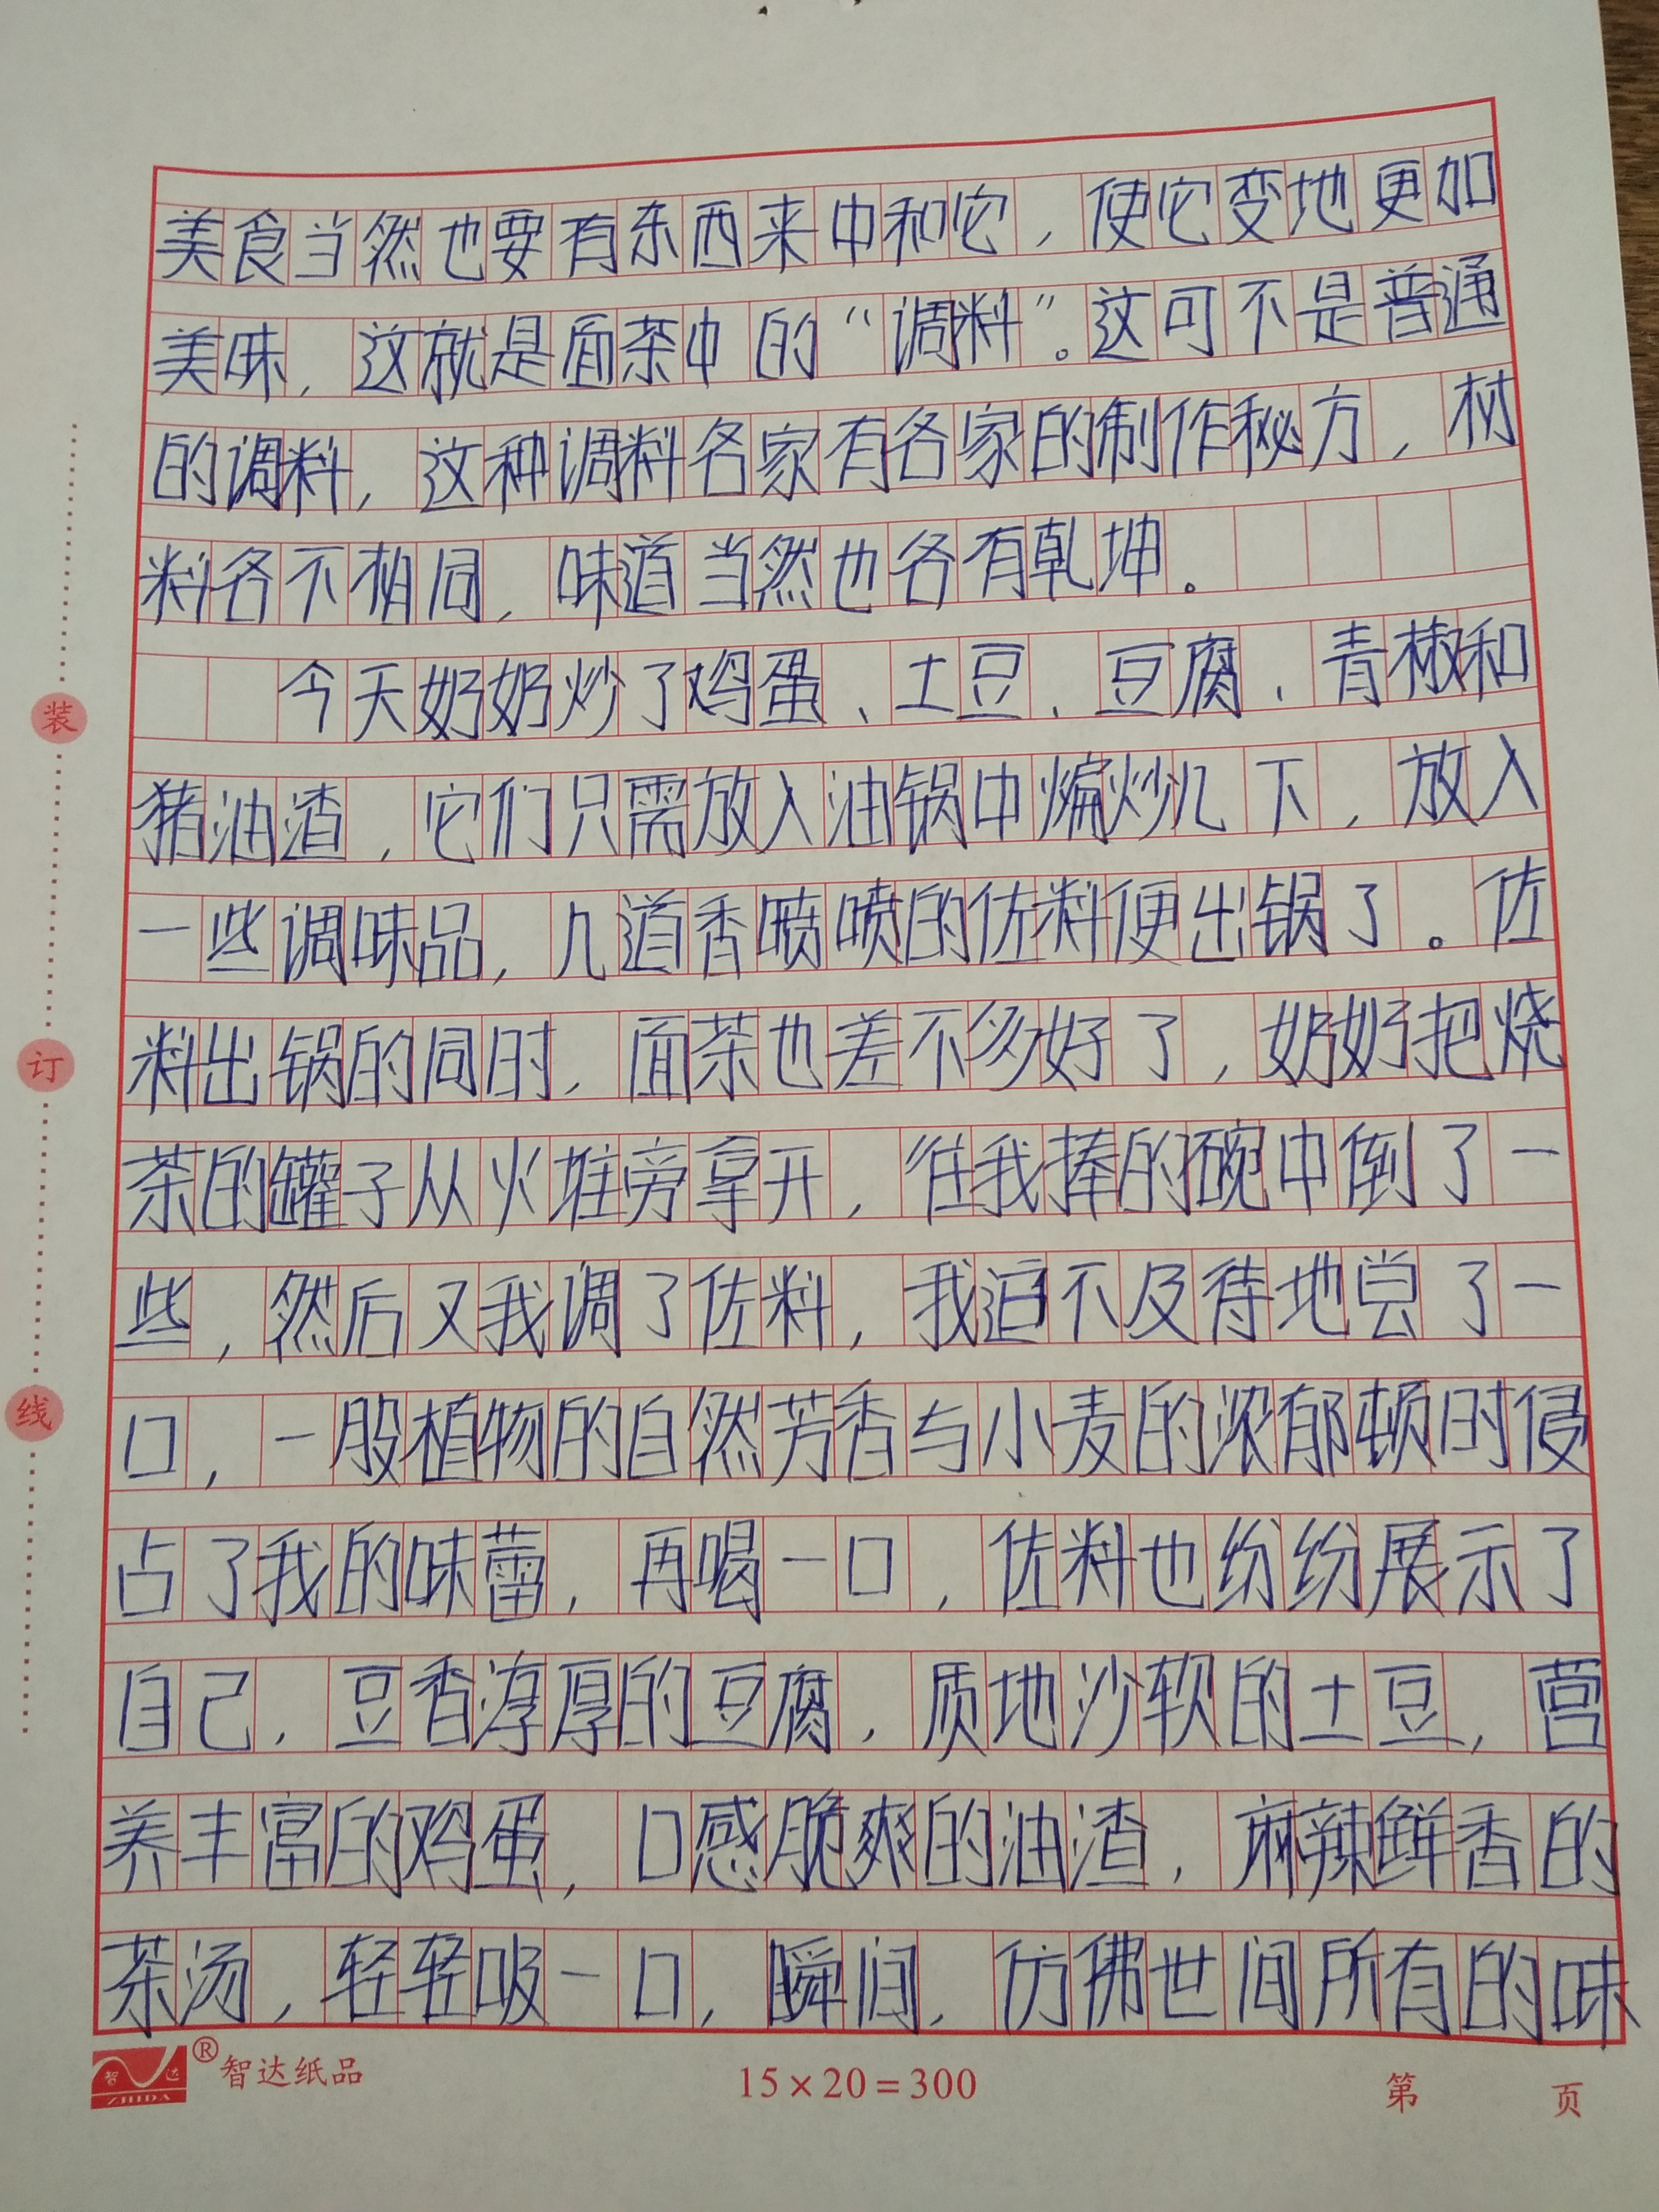 美食当然也要有东西来中和它，使它变地更加
美味，这就是面茶中的“调料”。这可不是普通
的调料，这种调料各家有各家的制作秘方，材
料各不相同，味道当然也各有乾坤。
今天奶奶炒了鸡蛋、土豆、豆腐、青椒和
猪油渣，它们只需放入油锅中煸炒几下，放入
一些调味品，几道香喷喷的佐料便出锅了。佐
料出锅的同时，面茶也差不多好了，奶奶把烧
茶的罐子从火堆旁拿开，往我捧的碗中倒了一
些，然后又我调了佐料，我迫不及待地尝了一
口，一股植物的自然芳香与小麦的浓郁顿时侵
占了我的味蕾，再喝一口，佐料也纷纷展示了
自己，豆香淳厚的豆腐，质地沙软的土豆，营
养丰富的鸡蛋，口感脆爽的油渣，麻辣鲜香的
茶汤，轻轻吸一口，瞬间，仿佛世间所有的味
装
订
线
智达
ZHIDA
®智达纸品
15×20=300
第 页